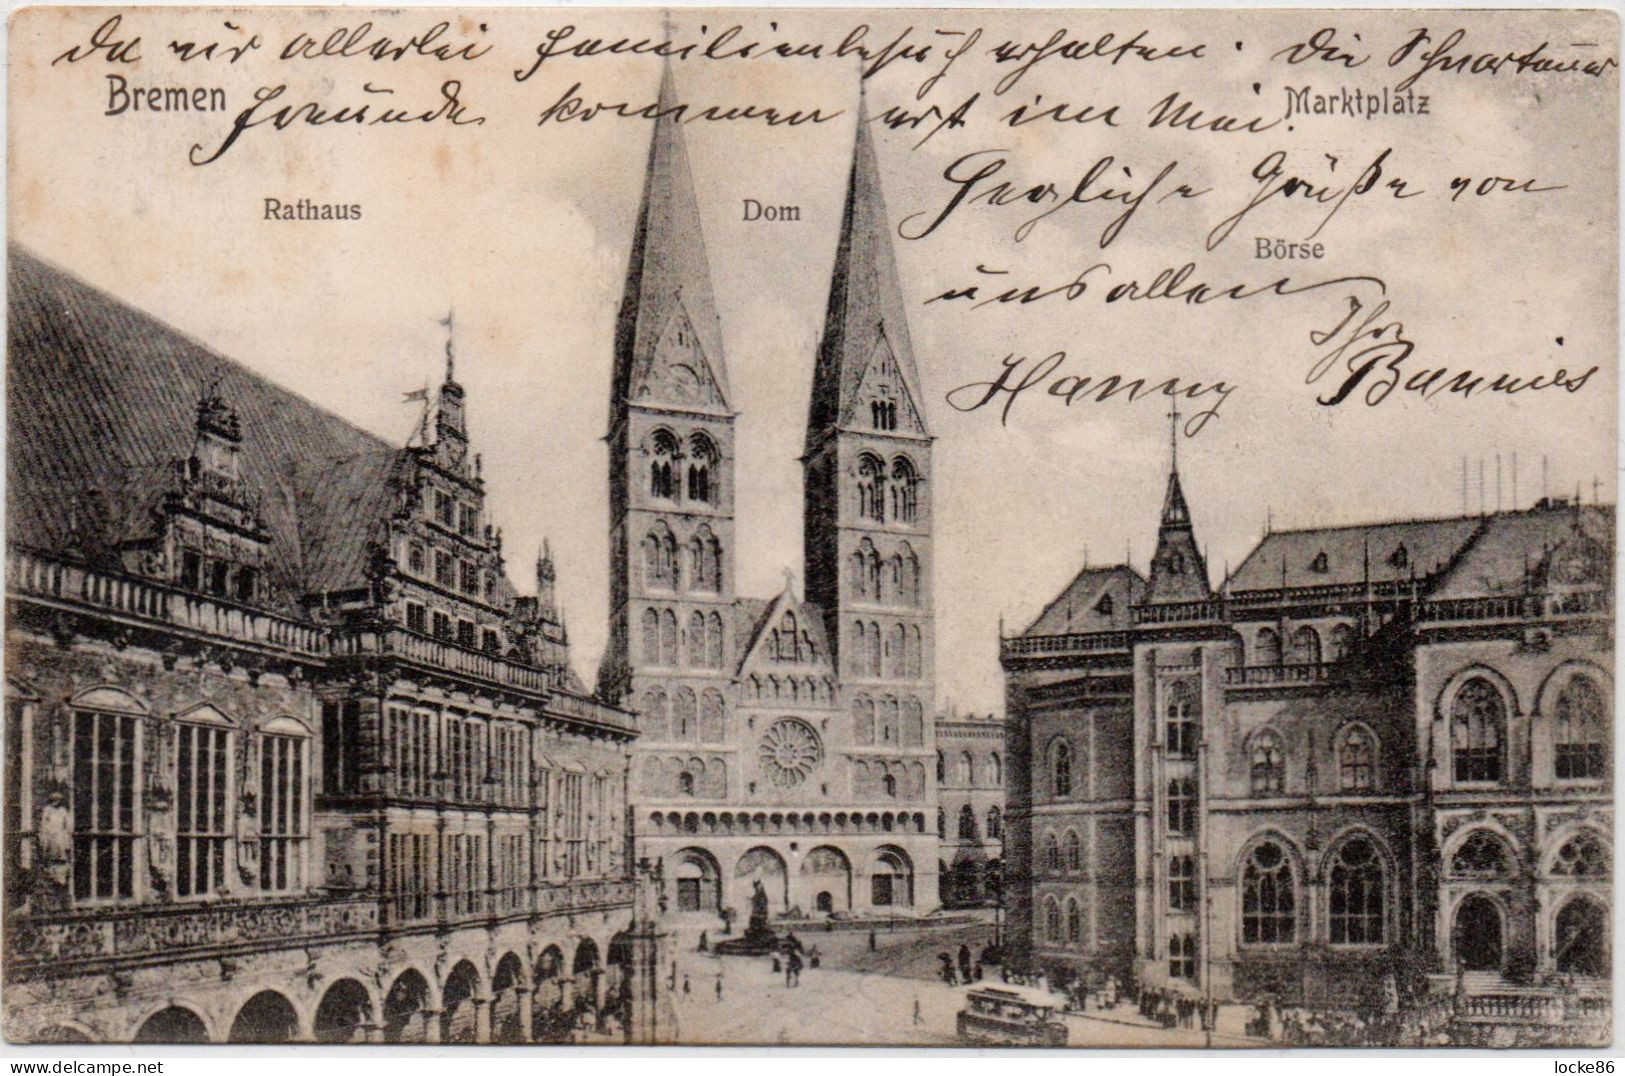 da wir allerlei Familienbesuch erhalten. Die Schwartauer
Bremen
Freunde kommen erst im Mai.
Marktplatz
Herzliche Grüße von
Rathaus
Dom
Börse
uns allen
Ihr
Hanny Bannies
www.delcampe.net
locke86